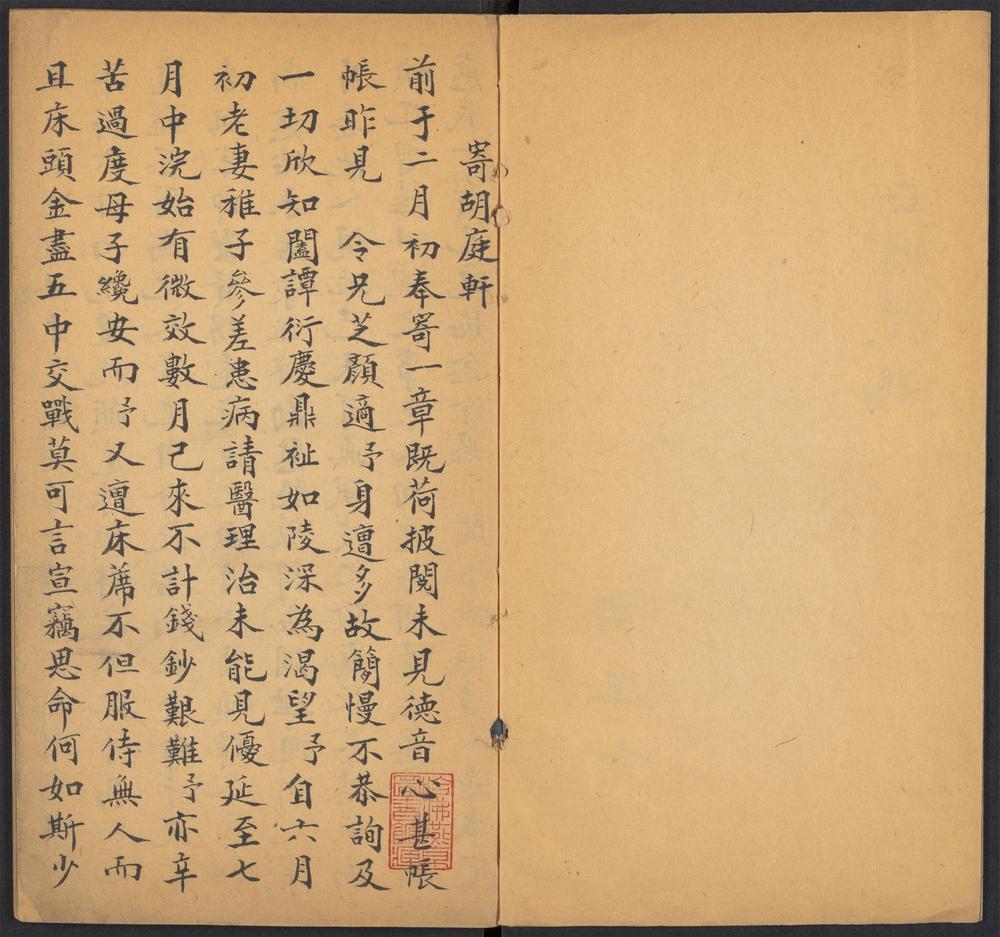 寄胡庭軒
前于二月初奉寄一章既荷披閱未見德音心甚帳
帳昨見　令兄芝顏適予身遭多故簡慢不恭詢及
一切欣知闔譚衍慶鼎祉如陵深為渴望予自六月
初老妻稚子參差患病請醫理治未能見優延至七
月中浣始有微效數月已來不計錢鈔艱難予亦辛
苦過度母子纔安而予又遭床蓆不但服侍無人而
且床頭金盡五中交戰莫可言宣竊思命何如斯少